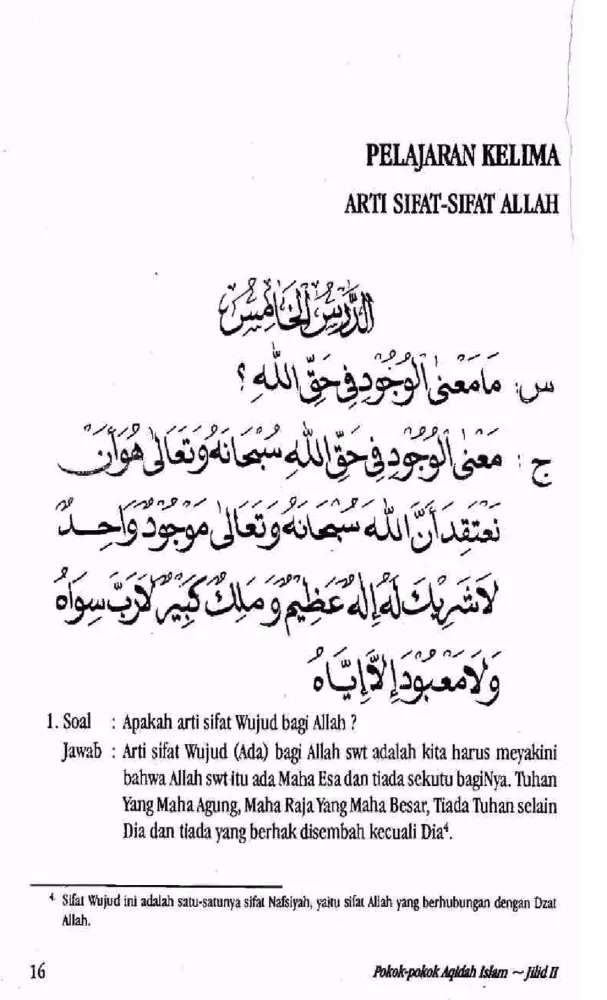 PELAJARAN KELIMA
ARTI SIFAT-SIFAT ALLAH
الدَّرْسُ الْخَامِسُ
س : مَا مَعْنَى الْوُجُوْدِ فِيْ حَقِّ اللهِ ؟
ج : مَعْنَى الْوُجُوْدِ فِيْ حَقِّ اللهِ سُبْحَانَهُ وَتَعَالَى هُوَ أَنْ
نَعْتَقِدَ أَنَّ اللهَ سُبْحَانَهُ وَتَعَالَى مَوْجُوْدٌ وَاحِدٌ
لَا شَرِيْكَ لَهُ إِلٰهٌ عَظِيْمٌ وَمَلِكٌ كَبِيْرٌ لَا رَبَّ سِوَاهُ
وَلَا مَعْبُوْدَ إِلَّا إِيَّاهُ
1. Soal : Apakah arti sifat Wujud bagi Allah ?
Jawab : Arti sifat Wujud (Ada) bagi Allah swt adalah kita harus meyakini
bahwa Allah swt itu ada Maha Esa dan tiada sekutu bagiNya. Tuhan
Yang Maha Agung, Maha Raja Yang Maha Besar, Tiada Tuhan selain
Dia dan tiada yang berhak disembah kecuali Dia⁴.
⁴ Sifat Wujud ini adalah satu-satunya sifat Nafsiyah, yaitu sifat Allah yang berhubungan dengan Dzat
Allah.
16 Pokok-pokok Aqidah Islam ~ Jilid II